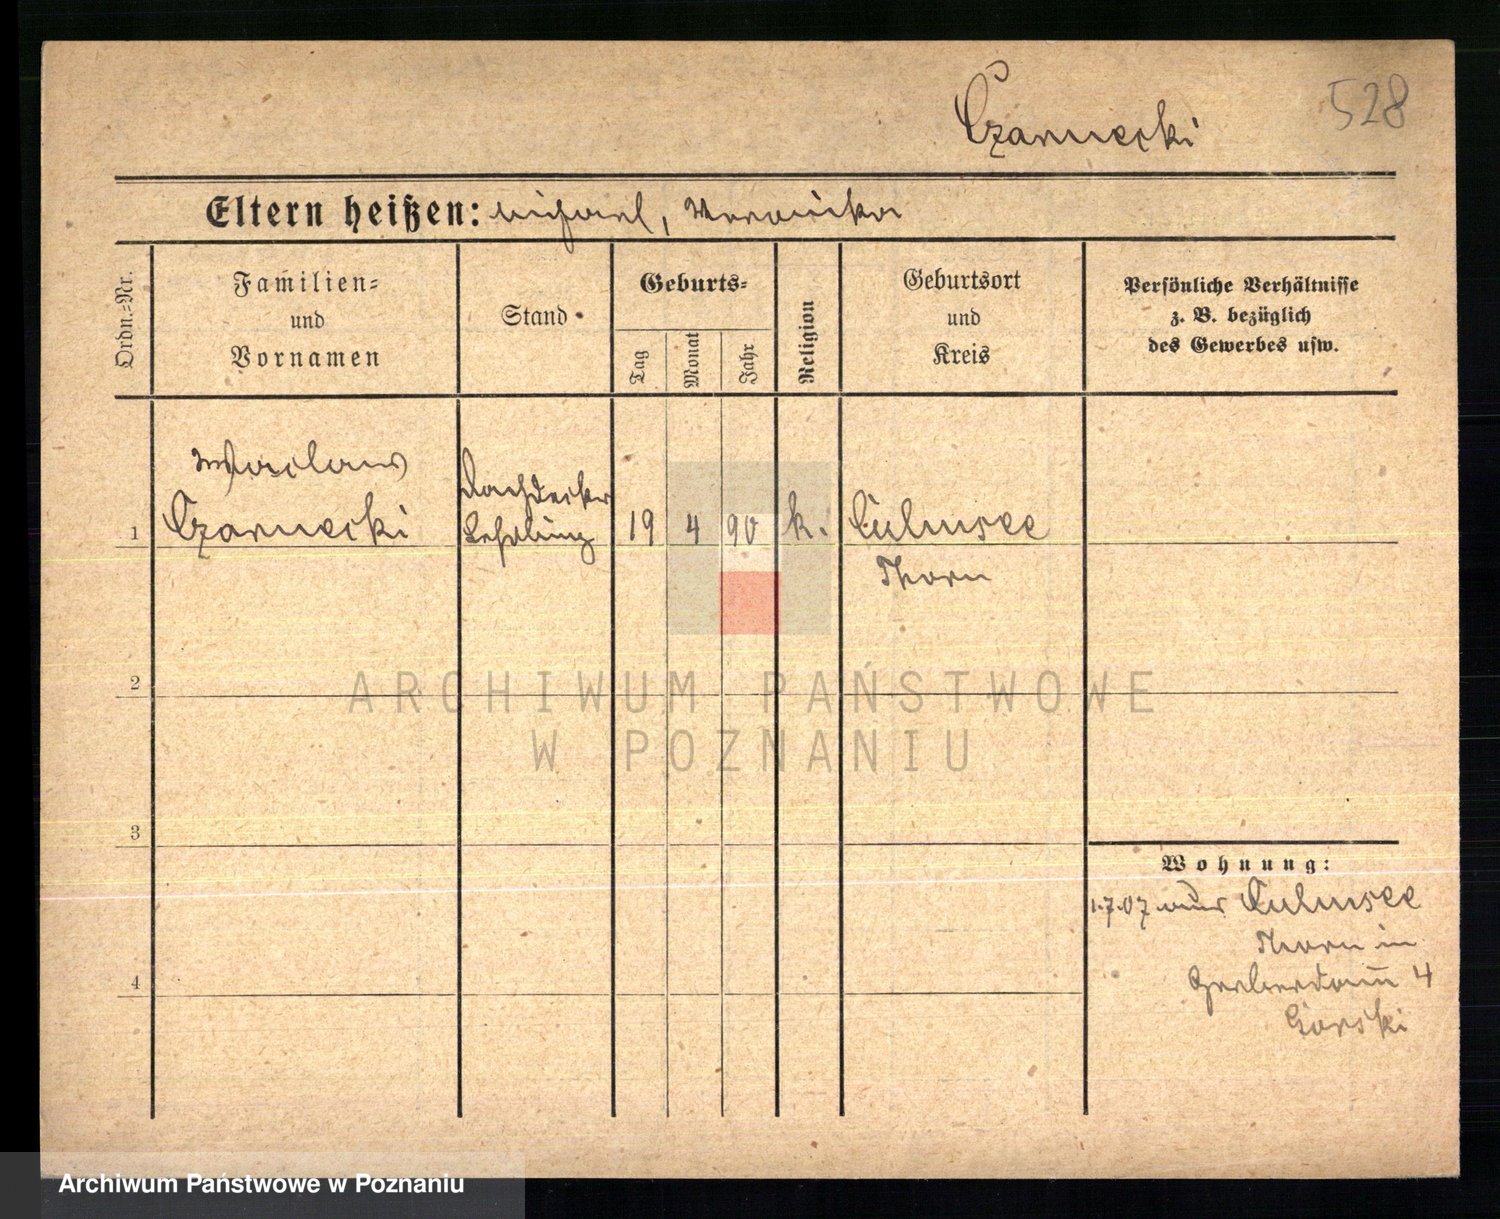 Czarnecki
528
Eltern heißen: Michael, Veronika
Ordn.-Nr.
Familien-
und
Vornamen
Stand
Geburts-
Tag
Monat
Jahr
Religion
Geburtsort
und
Kreis
Persönliche Verhältnisse
z. B. bezüglich
des Gewerbes usw.
Waclaw
Czarnecki
Dachdecker
Lehrling
1
19 4 90 k. Culmsee
Thorn
2
3
4
Wohnung:
1.7.07 aus Culmsee
Thorn in
Gerberdam̄ 4
Górski
ARCHIWUM PAŃSTWOWE
W POZNANIU
Archiwum Państwowe w Poznaniu